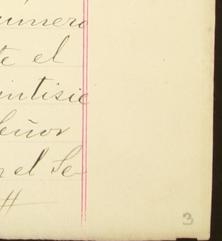 número
te el
intisie
Señor
n el Se-
#
3